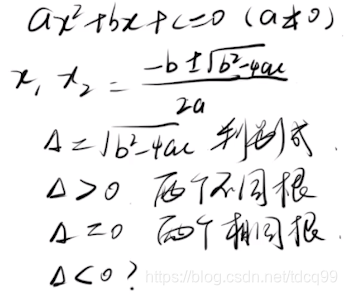 ax²+bx+c=0 (a≠0)
x₁ x₂ = (-b±√(b²-4ac))/(2a)
Δ=√(b²-4ac) 判别式
Δ>0 两个不同根
Δ=0 两个相同根
Δ<0?
https://blog.csdn.net/tdcq99